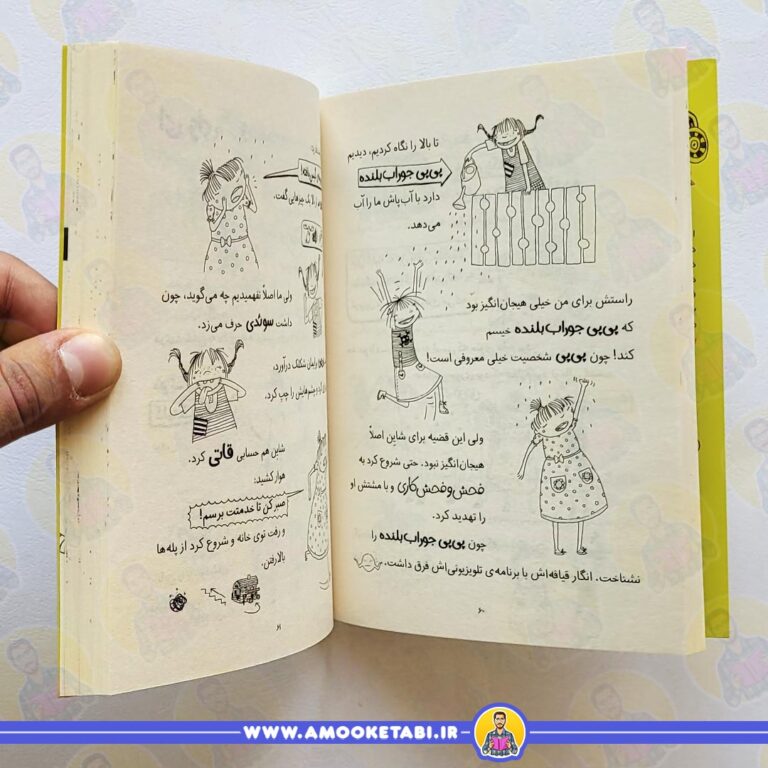 تا بالا را نگاه کردیم، دیدیم
پی‌پی جوراب‌بلنده
دارد با آب‌پاش ما را آب
می‌دهد.
راستش برای من خیلی هیجان‌انگیز بود
که پی‌پی جوراب‌بلنده خیسم
کند! چون پی‌پی شخصیت خیلی معروفی است!
ولی این قضیه برای شاین اصلاً
هیجان‌انگیز نبود. حتی شروع کرد به
فحش‌وفحش‌کاری و با مشتش او
را تهدید کرد.
چون پی‌پی جوراب‌بلنده را
نشناخت. انگار قیافه‌اش با برنامه‌ی تلویزیونی‌اش فرق داشت.
۶۰
چیزهایی گفت،
ولی ما اصلاً نفهمیدیم چه می‌گوید، چون
داشت سوئدی حرف می‌زد.
برایمان شکلک درآورد،
چشم‌هایش را چپ کرد.
شاین هم حسابی قاتی کرد.
هوار کشید:
صبر کن تا خدمتت برسم!
و رفت توی خانه و شروع کرد از پله‌ها
بالا رفتن.
۶۱
WWW.AMOOKETABI.IR